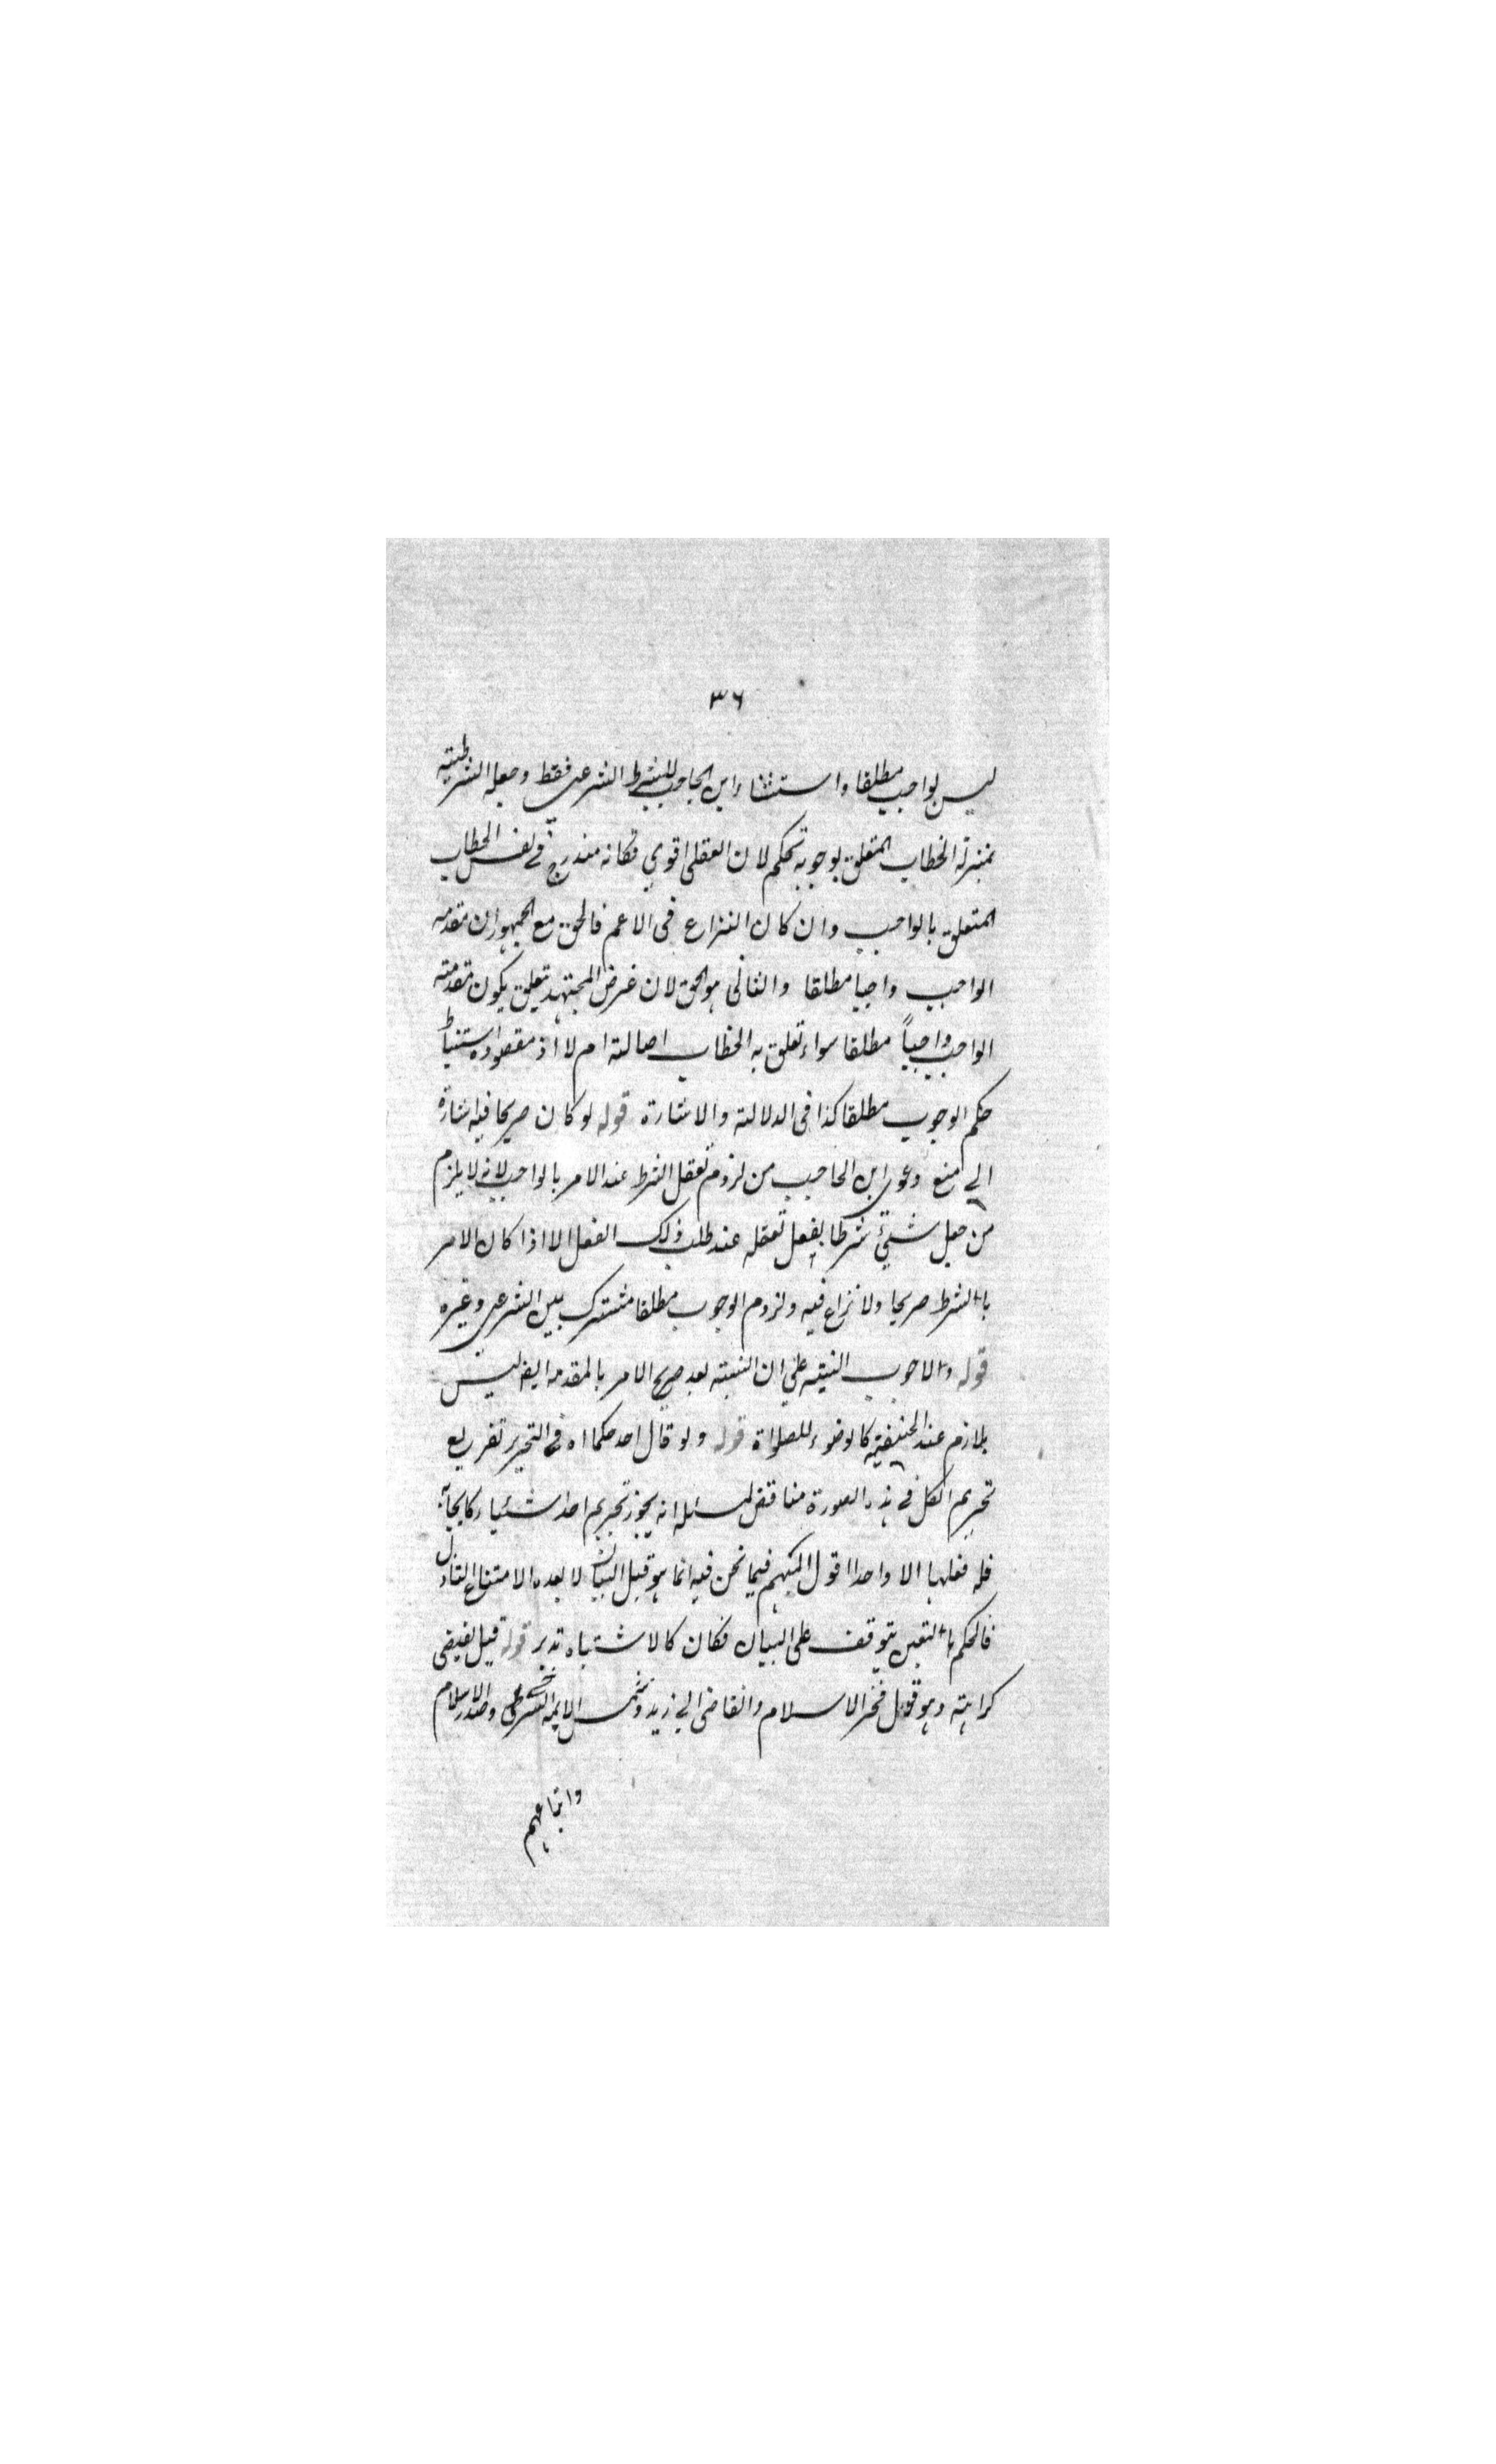 ٣٦
ليس بواجب مطلقا واستثناء ابن الحاجب للشرط الشرعي فقط وجعله الشرطية
بمنزلة الخطاب المتعلق بوجوبه تحكم لان العقلي اقوي فكانه مندرج في نفس الخطاب
المتعلق بالواجب وان كان النزاع في الاعم فالحق مع الجمهور ان مقدمة
الواجب واجبا مطلقا والثاني هو الحق لان غرض المجتهد يتعلق بكون مقدمته
الواجب واجباً مطلقا سواء تعلق به الخطاب اصالة ام لا اذ مقصوده استنباط
حكم الوجوب مطلقا كذا في الدلالة والاشارة قوله لو كان صريحا فيه اشارة
الي منع دعوى ابن الحاجب من لزوم تعقل الشرط عند الامر بالواجب لانه لا يلزم
من جعل شيئ شرطا بفعل تعقله عند طلب ذلك الفعل الا اذا كان الامر
بالشرط صريحا ولا نزاع فيه ولزوم الوجوب مطلقا مشترك بين الشرعي وغيره
قوله والا وجب النية علي ان النية بعد صريح الامر بالمقدمة ايضا ليس
بلازم عند الحنفية كالوضوء للصلواة قوله ولو قال احدكما اه في التحرير تفريع
تحريم الكل في هذه الصورة مناقض لمسئلة انه يجوز تحريم احد اشياء كايجابه
فله فعلها الا واحدا اقول المبهم فيما نحن فيه انما هو قبل البيان لا بعده الامتناع
فالحكم بالتعين يتوقف على البيان فكان كالاشتباه تدبر قوله قيل يقتضى
كراهته وهو قول فخر الاسلام والقاضى ابي زيد وشمس الايمة السرخسي وصدر الاسلام
واتباعهم